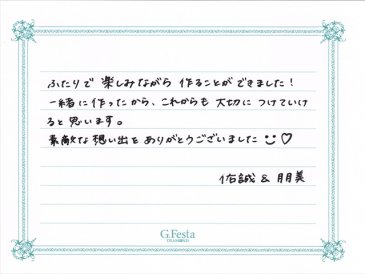 ふたりで 楽しみながら 作ることが できました！
一緒に作ったから、これからも 大切に つけていけ
ると 思います。
素敵な想い出を ありがとうございました
佑誠 & 朋美
G.Festa